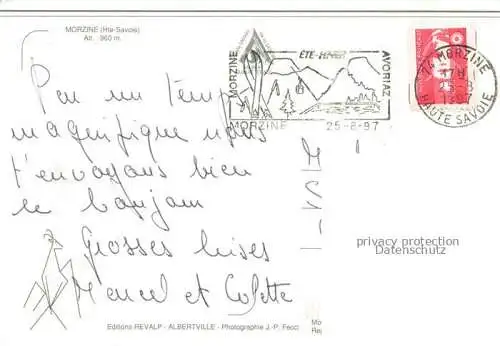 MORZINE (Hte-Savoie)
Alt. 960 m.
MORZINE
ÉTÉ-HIVER
AVORIAZ
MORZINE 25-8-97
74 MORZINE
17H
25-8
1997
HAUTE SAVOIE
Par un temps
magnifique nous
t'envoyons bien
le bonjour
Grosses bises
Marcel et Colette
privacy protection
Datenschutz
Editions REVALP - ALBERTVILLE - Photographie J.-P. Fecci
Mo
Rep